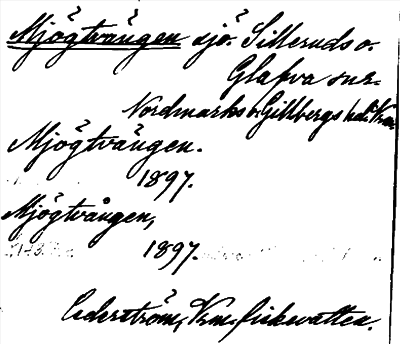 Mjögtvängen sjö. Silleruds o.
Glafva snr.
Nordmarks o. Gillbergs hd. Vrm
Mjögtvängen.
1897.
Mjögtvången,
1897.
Cederström, Vrm. fiskevatten.